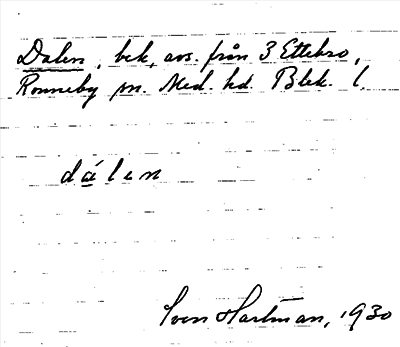 Dalen, bek, avs. från 3 Ettebro,
Ronneby sn. Med. hd. Blek. l.
dálen
Sven Hartman, 1930